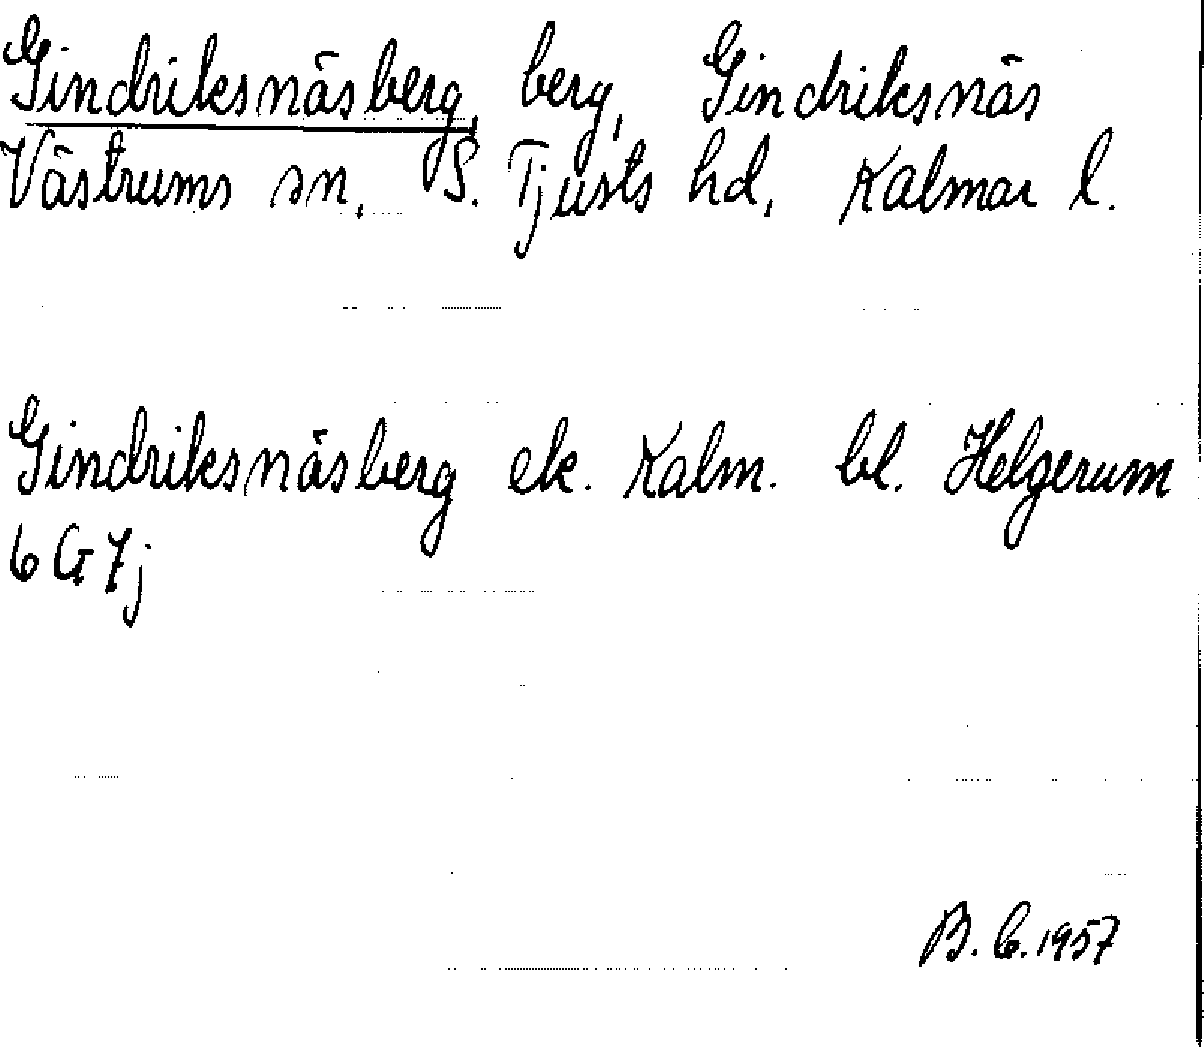 Gindriksnäsberg, berg, Gindriksnäs
Västrums sn, S. Tjusts hd, Kalmar l.
Gindriksnäsberg ek. Kalm. bl. Helgerum
6 G 7j
B. C. 1957